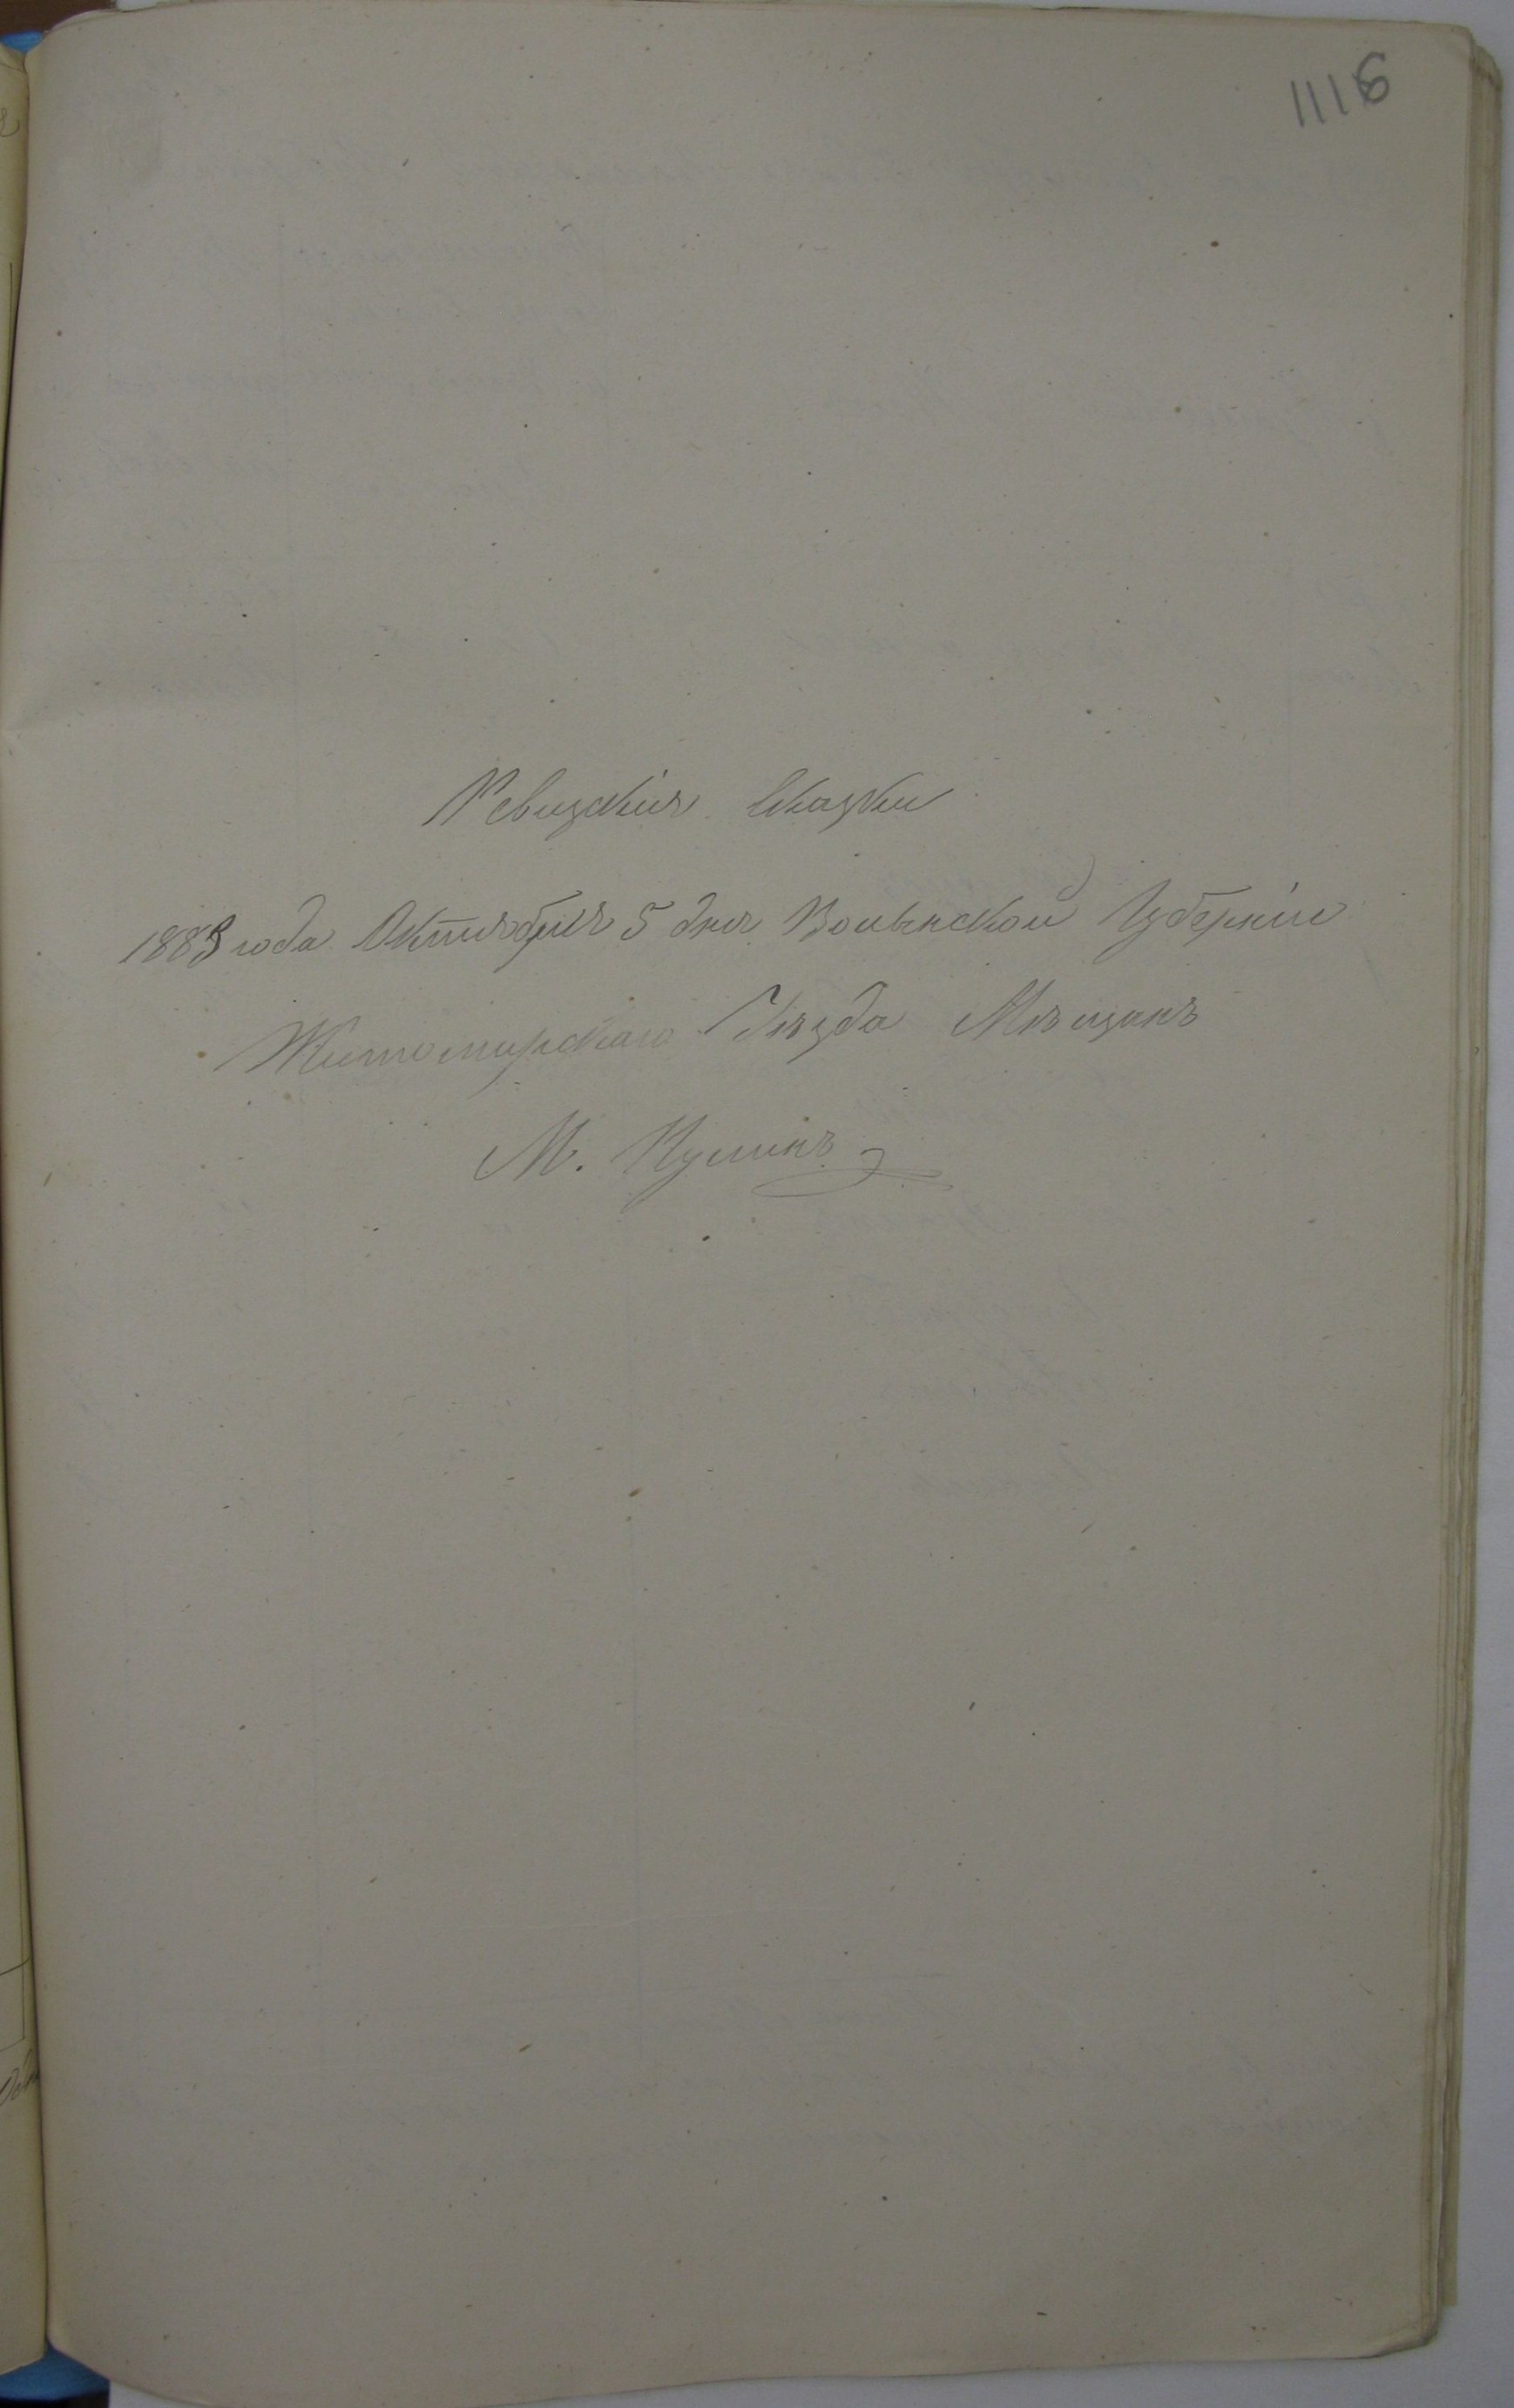 1116
Ревизскія Сказки
1883 года Октября 5 дня Волынской Губерніи
Житомирскаго Уѣзда Мѣщанъ
М. Кулинъ